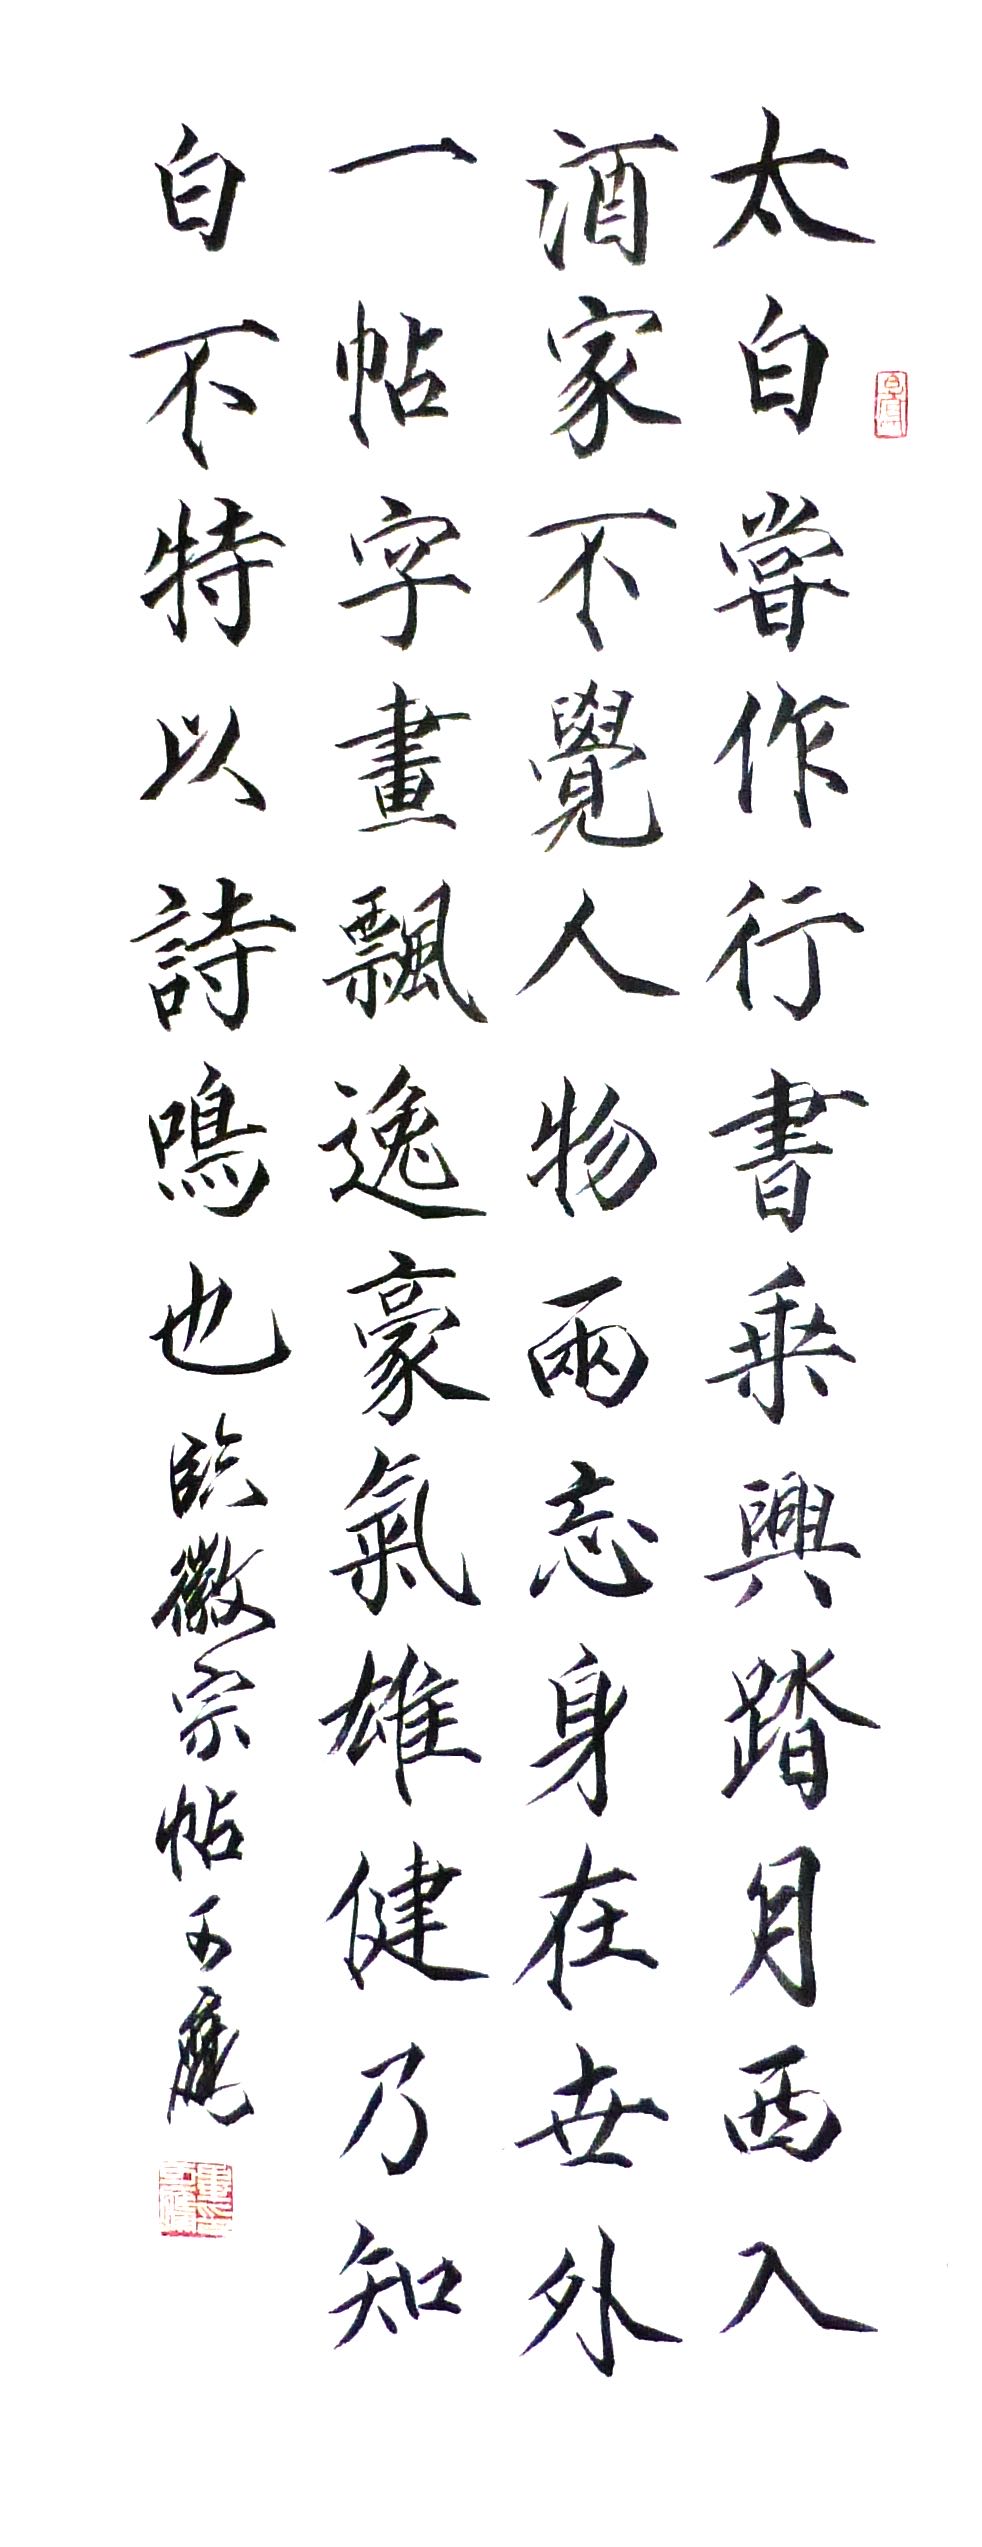 太白嘗作行書乘興踏月西入
酒家不覺人物兩忘身在世外
一帖字畫飄逸豪氣雄健乃知
白不特以詩鳴也臨徽宗帖